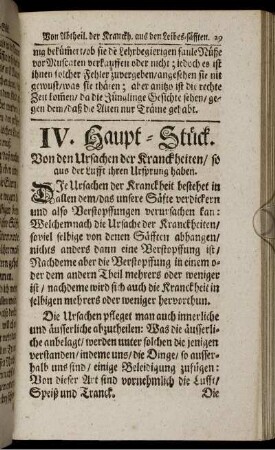 Von Abtheil. der Kranckh. aus den Leibes-säfften. 29
nig bekümert/ob sie die Lehrbegierigen faule Nüße
vor Muscaten verkauffen oder nicht; jedoch es ist
ihnen solcher Fehler zuvergeben/angesehen sie nit
gewust/was sie thäten; aber anitzo ist die rechte
Zeit komen/da die Jünglinge Gesichte sehen/ge-
gen dem/daß die Alten nur Träume gehabt.
IV. Haupt-Stück.
Von den Ursachen der Kranckheiten/so
aus der Lufft ihren Ursprung haben.
DIe Ursachen der Kranckheit bestehet in
allen dem/das unsere Säfte verdickern
und also Verstopffungen verursachen kan:
Welchemnach die Ursache der Kranckheiten/
soviel selbige von denen Säfften abhangen/
nichts anders dann eine Verstopffung ist/
Nachdeme aber die Verstepffung in einem o-
der dem andern Theil mehrers oder weniger
ist/nachdeme wird sich auch die Kranckheit in
selbigen mehrers oder weniger hervorthun.
Die Ursachen pfleget man auch innerliche
und äusserliche abzutheilen: Was die äusserli-
che anbelagt/werden unter solchen die jenigen
verstanden/indeme uns/die Dinge/so ausser-
halb uns sind/einige Beleidigung zufügen:
Von dieser Art sind vornehmlich die Lufft/
Speiß und Tranck. Die